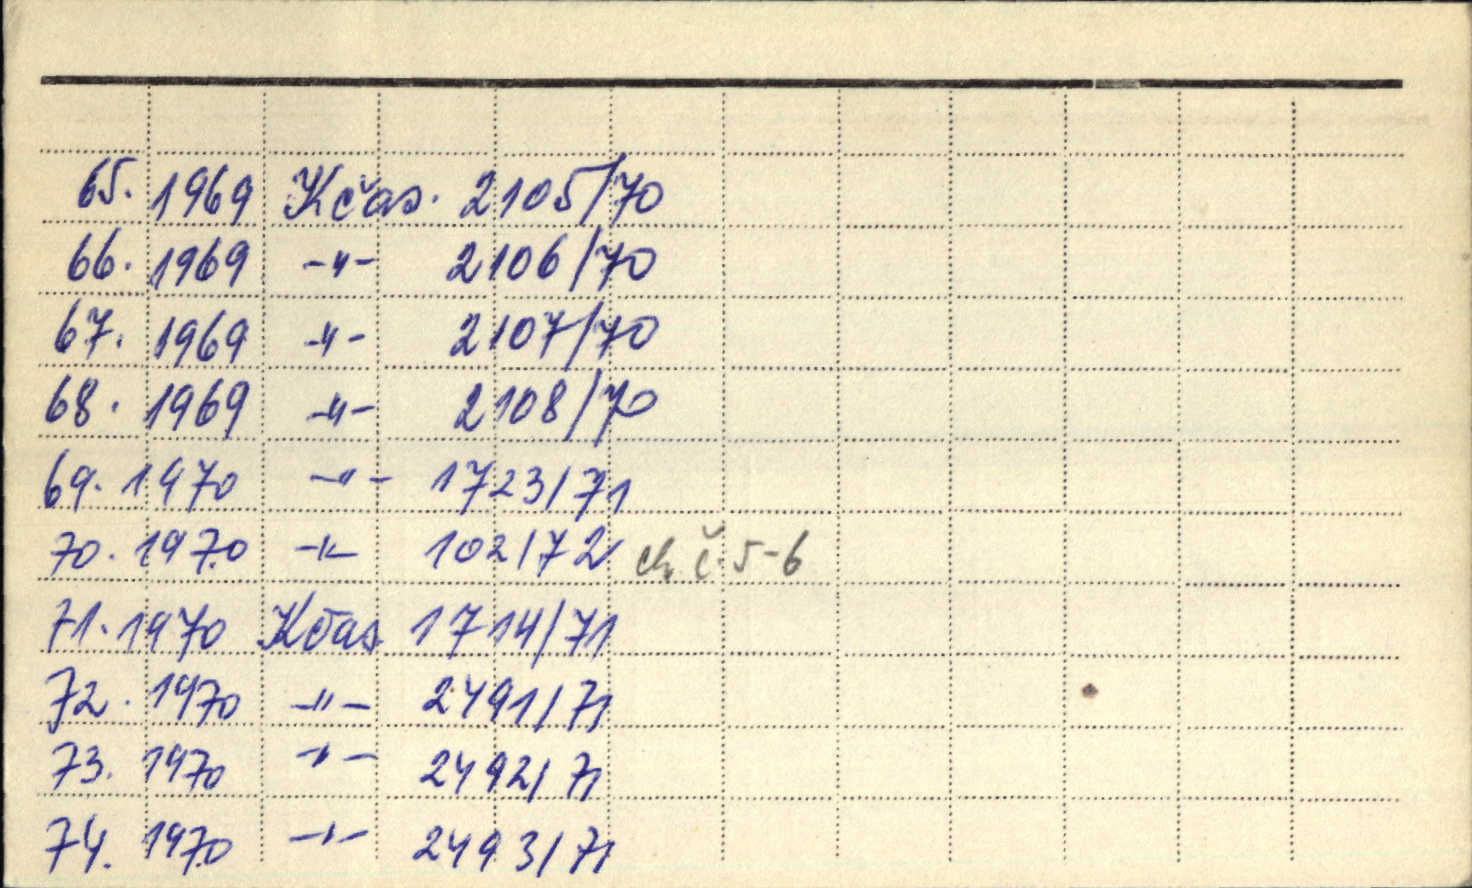 65. 1969 Kčas. 2105/70
66. 1969 -"- 2106/70
67. 1969 -"- 2107/70
68. 1969 -"- 2108/70
69. 1970 -"- 1723/71
70. 1970 -"- 102/72 ch. č. 5-6
71. 1970 Kčas 1714/71
72. 1970 -"- 2491/71
73. 1970 -"- 2492/71
74. 1970 -"- 2493/71